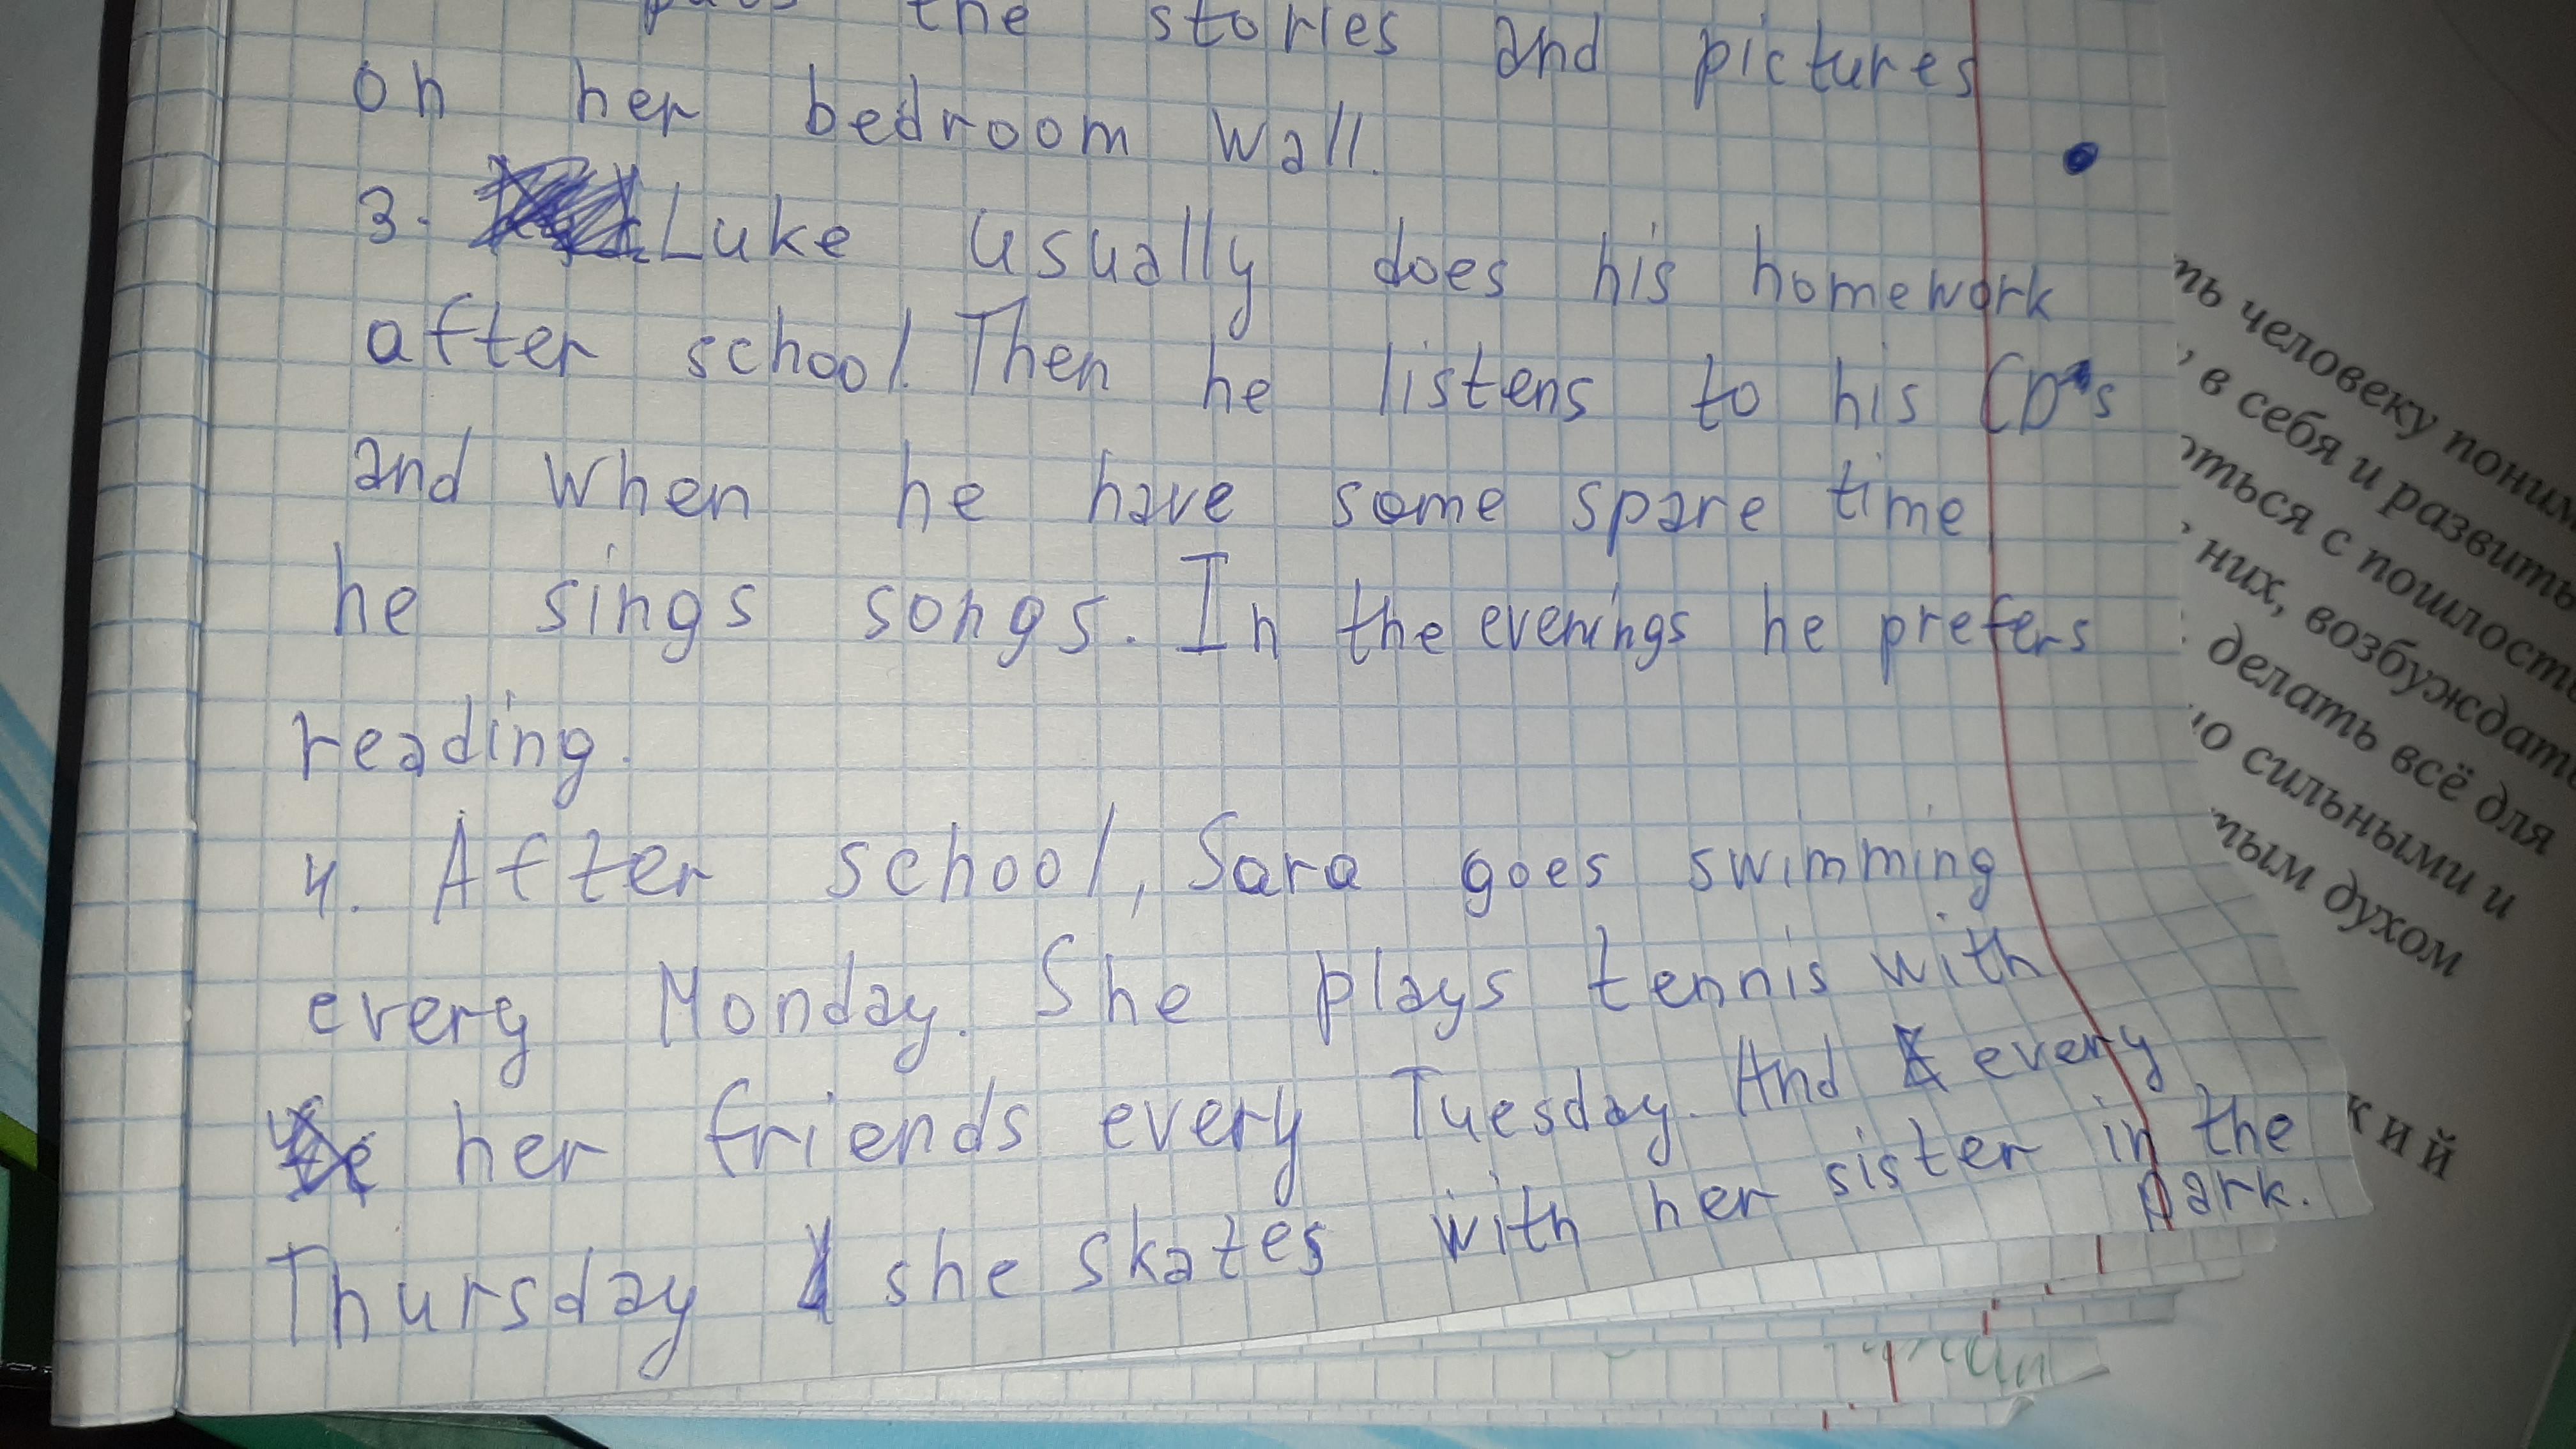 puts the stories and pictures
on her bedroom wall.
3. Luke usually does his homework
after school. Then he listens to his CD's
and when he have some spare time
he sings songs. In the evenings he prefers
reading.
4. After school, Sara goes swimming
every Monday. She plays tennis with
her friends every Tuesday. And every
Thursday she skates with her sister in the
park.
ть человеку поним
, в себя и развить
оться с пошлость
, них, возбуждать
делать всё для
но сильными и
тым духом
кий